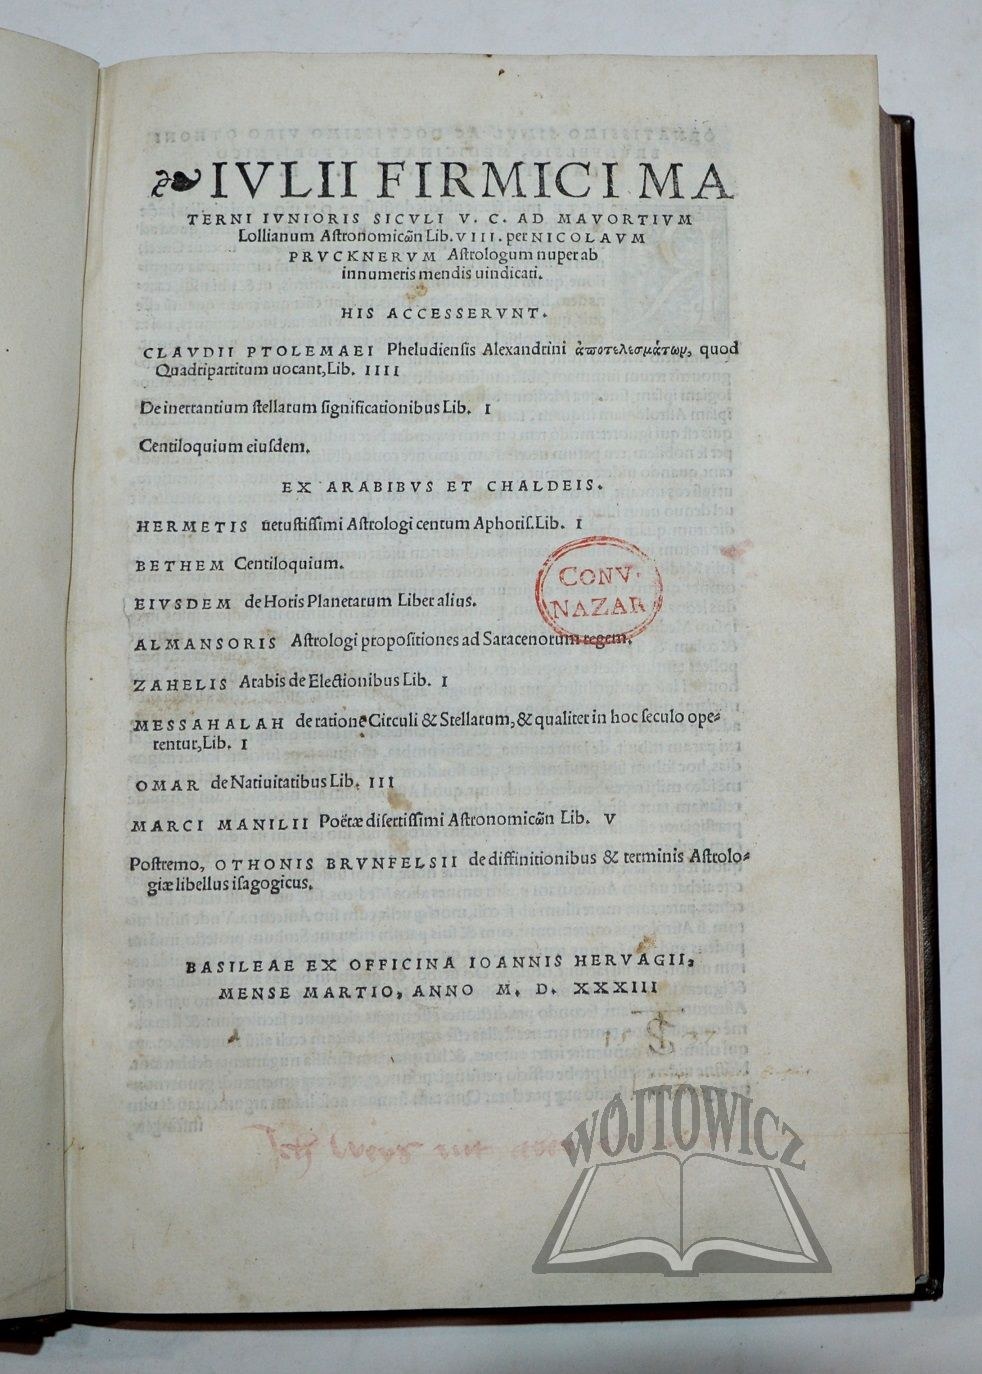 IVLII FIRMICI MA
TERNI IVNIORIS SICVLI V. C. AD MAVORTIVM
Lollianum Astronomicωn Lib. VIII. per NICOLAVM
PRVCKNERVM Astrologum nuper ab
innumeris mendis uindicati.
HIS ACCESSERVNT.
CLAVDII PTOLEMAEI Pheludiensis Alexandrini ἀποτελεσμάτωμ, quod
Quadripartitum uocant, Lib. IIII
De inerrantium stellarum significationibus Lib. I
Centiloquium eiusdem.
EX ARABIBVS ET CHALDEIS.
HERMETIS uetustissimi Astrologi centum Aphoris. Lib. I
BETHEM Centiloquium.
EIVSDEM de Horis Planetarum Liber alius.
ALMANSORIS Astrologi propositiones ad Saracenorum regem.
ZAHELIS Arabis de Electionibus Lib. I
MESSAHALAH de ratione Circuli & Stellarum, & qualiter in hoc seculo ope-
rentur, Lib. I
OMAR de Natiuitatibus Lib. III
MARCI MANILII Poëtæ disertissimi Astronomicωn Lib. V
Postremo, OTHONIS BRVNFELSII de diffinitionibus & terminis Astrolo-
giæ libellus isagogicus.
BASILEAE EX OFFICINA IOANNIS HERVAGII,
MENSE MARTIO, ANNO M. D. XXXIII
CONV.
NAZAR
WÓJTOWICZ